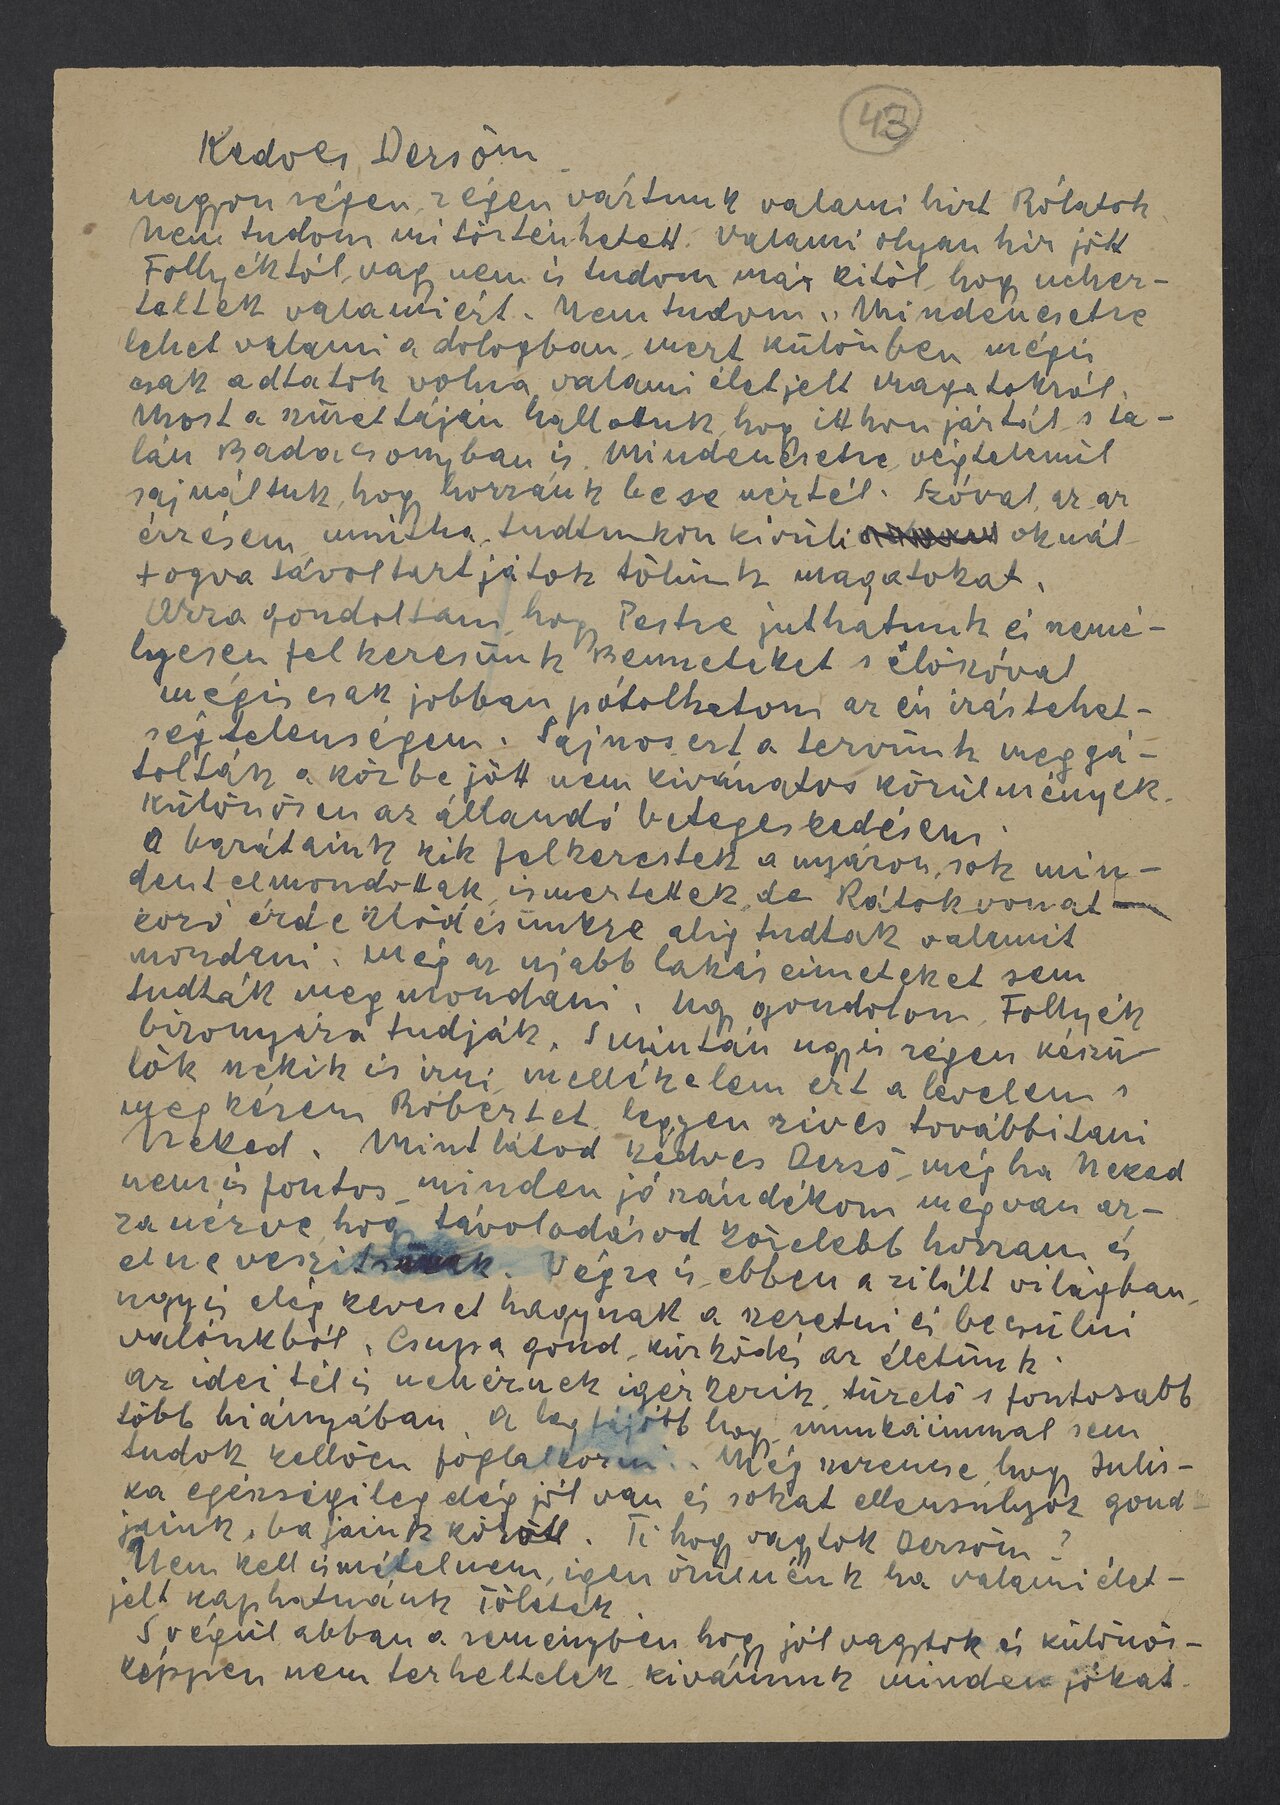 43
Kedves Dersőm
nagyon régen, régen vártunk valami hirt Rólatok
Nem tudom mi történhetett. Valami olyan hir jött
Follyéktól, vagy nem is tudom már kitől, hogy neher-
teltek valamiért. Nem tudom. Mindenesetre
lehet valami a dologban, mert különben mégis
csak adtatok volna valami életjelt magatokról.
Most a szüret táján hallottuk, hogy itthon jártál s ta-
lán Badacsonyban is. Mindenesetre végtelenül
sajnáltuk, hogy hozzánk be se nértél. Szóval az az
érzésem, mintha tudtunkon kivüli oknál
fogva távoltartjátok tőlünk magatokat.
Arra gondoltam, hogy Pestre juthatunk és szemé-
lyesen felkeresünk Benneteket s élőszóval
mégis csak jobban pótolhatom az én irástehet-
ségtelenségem. Sajnos ezt a tervünk meggá-
tolták a közbe jött nem kivánatos körülmények.
Különösen az állandó betegeskedésem.
A barátaink kik felkerestek a nyáron, sok min-
dent elmondottak, ismertettek, de Rátok vonat-
kozó érdeklődésünkre alig tudtak valamit
mondani. Még az ujabb lakáscimeteket sem
tudták megmondani. Ugy gondolom, Follyék
bizonyára tudják. S miután ugyis régen készü-
lök nekik is irni, mellékelem ezt a levelem s
megkérem Róbertet legyen szives továbbitani
Neked. Mint látod kedves Dersőm, még ha Neked
nem is fontos, minden jó szándékom megvan ar-
ra nérve, hogy távolodásod közelebb hozzam és
el ne veszitsünk. Végre is ebben a zilált világban
ugyis elég keveset hagynak a szeretni és becsülni
valónkból. Csupa gond, küzködés az életünk.
Az idei tél is nehéznek igérkezik, tüzelő s fontosabb
több hiányában. A legfőbb hogy munkáimmal sem
tudok kellően foglalkozni. Még szerencse, hogy Julis-
ka egészségileg elég jól van és sokat ellensúlyoz gond-
jaink, bajaink között. Ti hogy vagytok Dersőm?
Nem kell ismételnem, igen örülnénk ha valami élet-
jelt kaphatnánk Tőletek.
S végül abban a reményben hogy jól vagytok és különös-
képpen nem terheltelek kivánunk minden jókat.